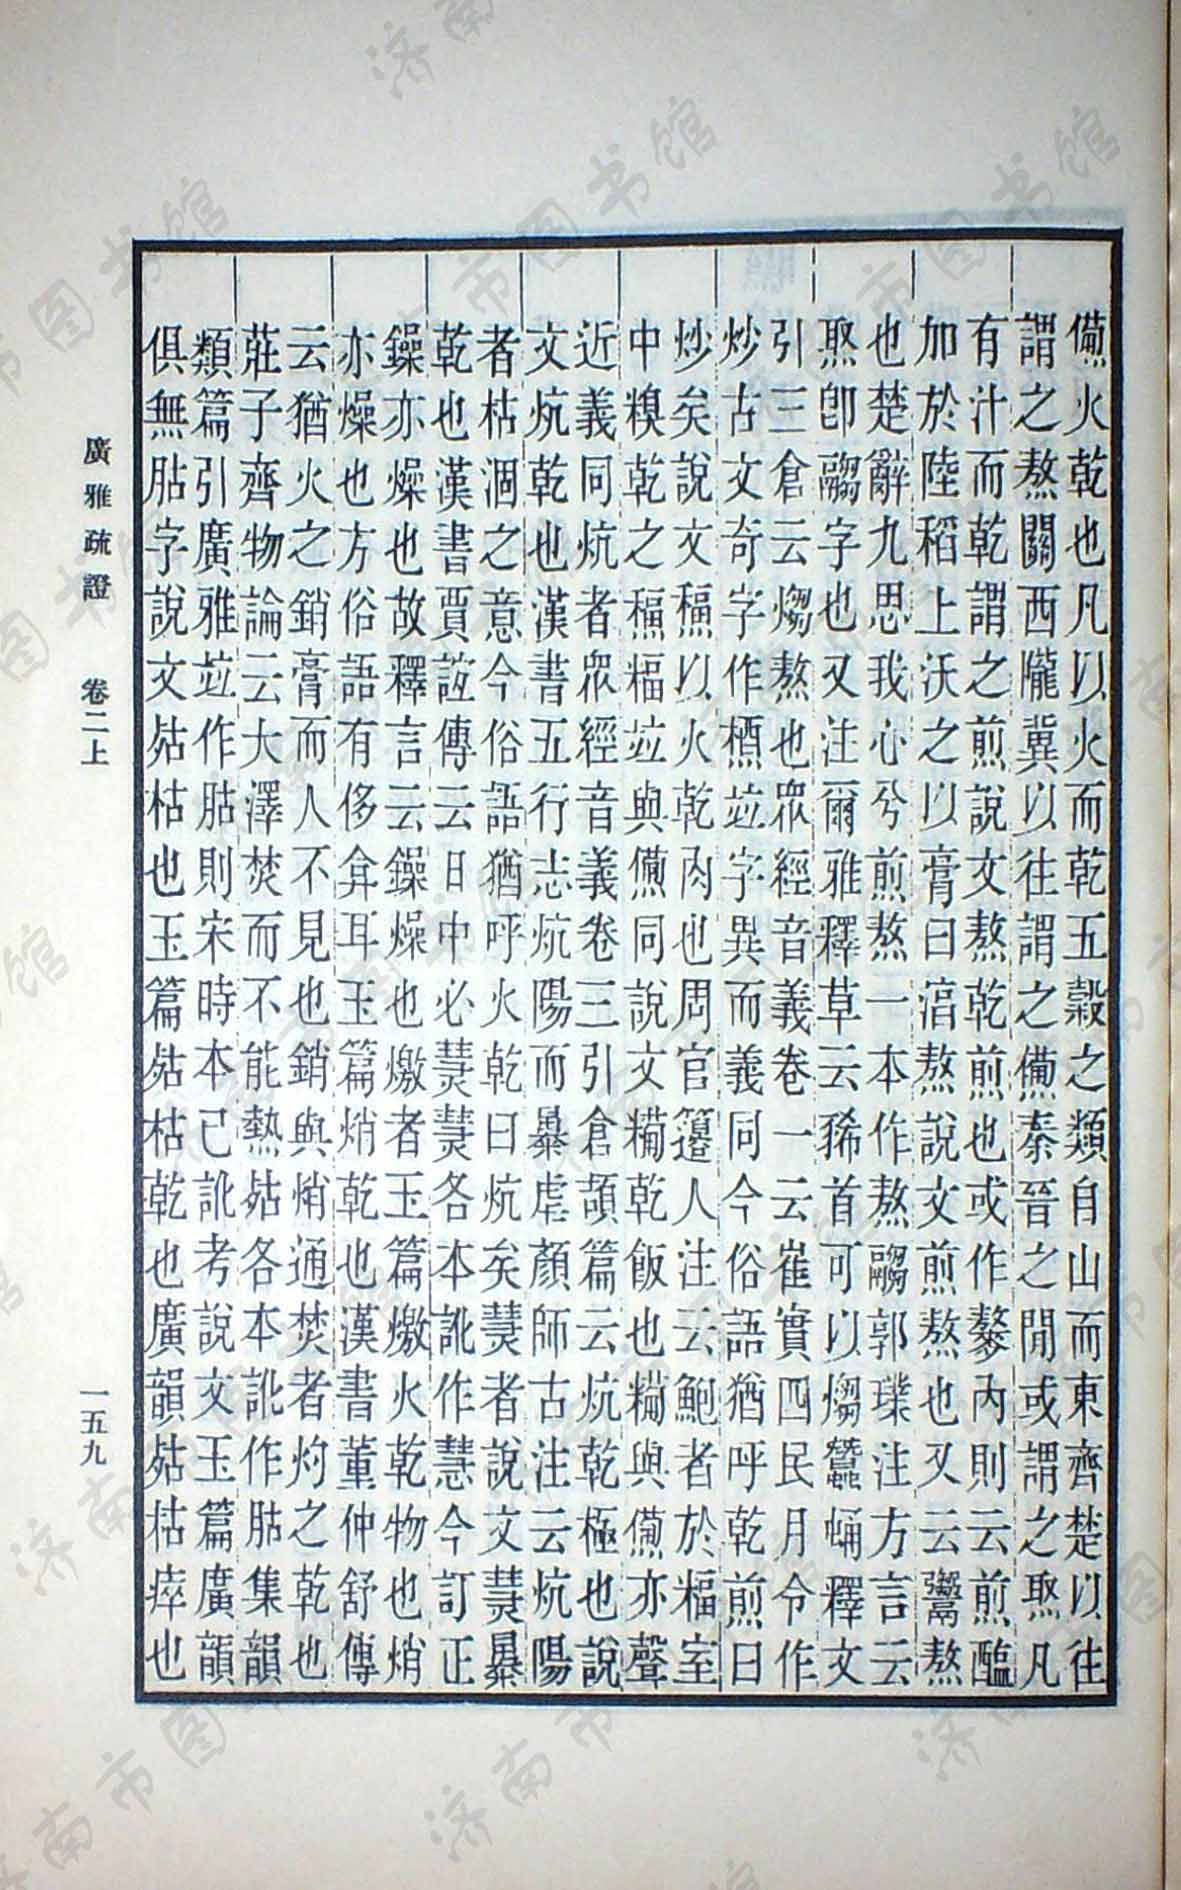 㷶火乾也凡以火而乾五穀之類自山而東齊楚以往
謂之熬關西隴冀以往謂之㷶秦晉之閒或謂之㷅凡
有汁而乾謂之煎說文熬乾煎也或作𪍷內則云煎醢
加於陸稻上沃之以膏曰淳熬說文煎熬也又云𩱦熬
也楚辭九思我心兮煎熬一本作熬𩱈郭璞注方言云
㷅即𩱈字也又注爾雅釋草云豨首可以㷅蠶蛹釋文
引三倉云㷅熬也眾經音義卷一云崔寔四民月令作
炒古文奇字作䊭竝字異而義同今俗語猶呼乾煎曰
炒矣說文𥻅以火乾肉也周官籩人注云鮑者於䊗室
中糗乾之𥻅䊗竝與㷶同說文𥻆乾飯也𥻆與㷶亦聲
近義同炕者眾經音義卷三引倉頡篇云炕乾極也說
文炕乾也漢書五行志炕陽而暴虐顏師古注云炕陽
者枯涸之意今俗語猶呼火乾曰炕矣㷓者說文㷓暴
乾也漢書賈誼傳云日中必㷓㷓各本訛作慧今訂正
鐰亦燥也故釋言云鐰燥也燩者玉篇燩火乾物也焇
亦燥也方俗語有侈弇耳玉篇焇乾也漢書董仲舒傳
云猶火之銷膏而人不見也銷與焇通焚者灼之乾也
莊子齊物論云大澤焚而不能熱㱠各本訛作胋集韻
類篇引廣雅竝作胋則宋時本已訛考說文玉篇廣韻
俱無胋字說文㱠枯也玉篇㱠枯乾也廣韻㱠枯瘁也
廣雅疏證 卷二上
一五九